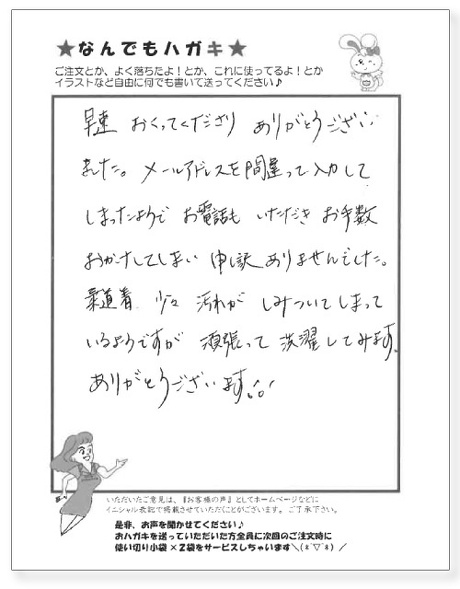 ★なんでもハガキ★
ご注文とか、よく落ちたよ！とか、これに使ってるよ！とか
イラストなど自由に何でも書いて送ってください♪
早速 おくってくださり ありがとうござい
ました。メールアドレスを間違って入力して
しまったようで お電話も いただき お手数
おかけしてしまい 申し訳ありませんでした。
柔道着 少々 汚れが しみついてしまって
いるようですが 頑張って 洗濯してみます。
ありがとうございます。
いただいたご意見は、『お客様の声』としてホームページなどに
イニシャル表記で掲載させていただくことがございます。ご了承下さい。
是非、お声を聞かせてください♪
おハガキを送っていただいた方全員に次回のご注文時に
使い切り小袋×2袋をサービスしちゃいます＼(*^▽^*)／